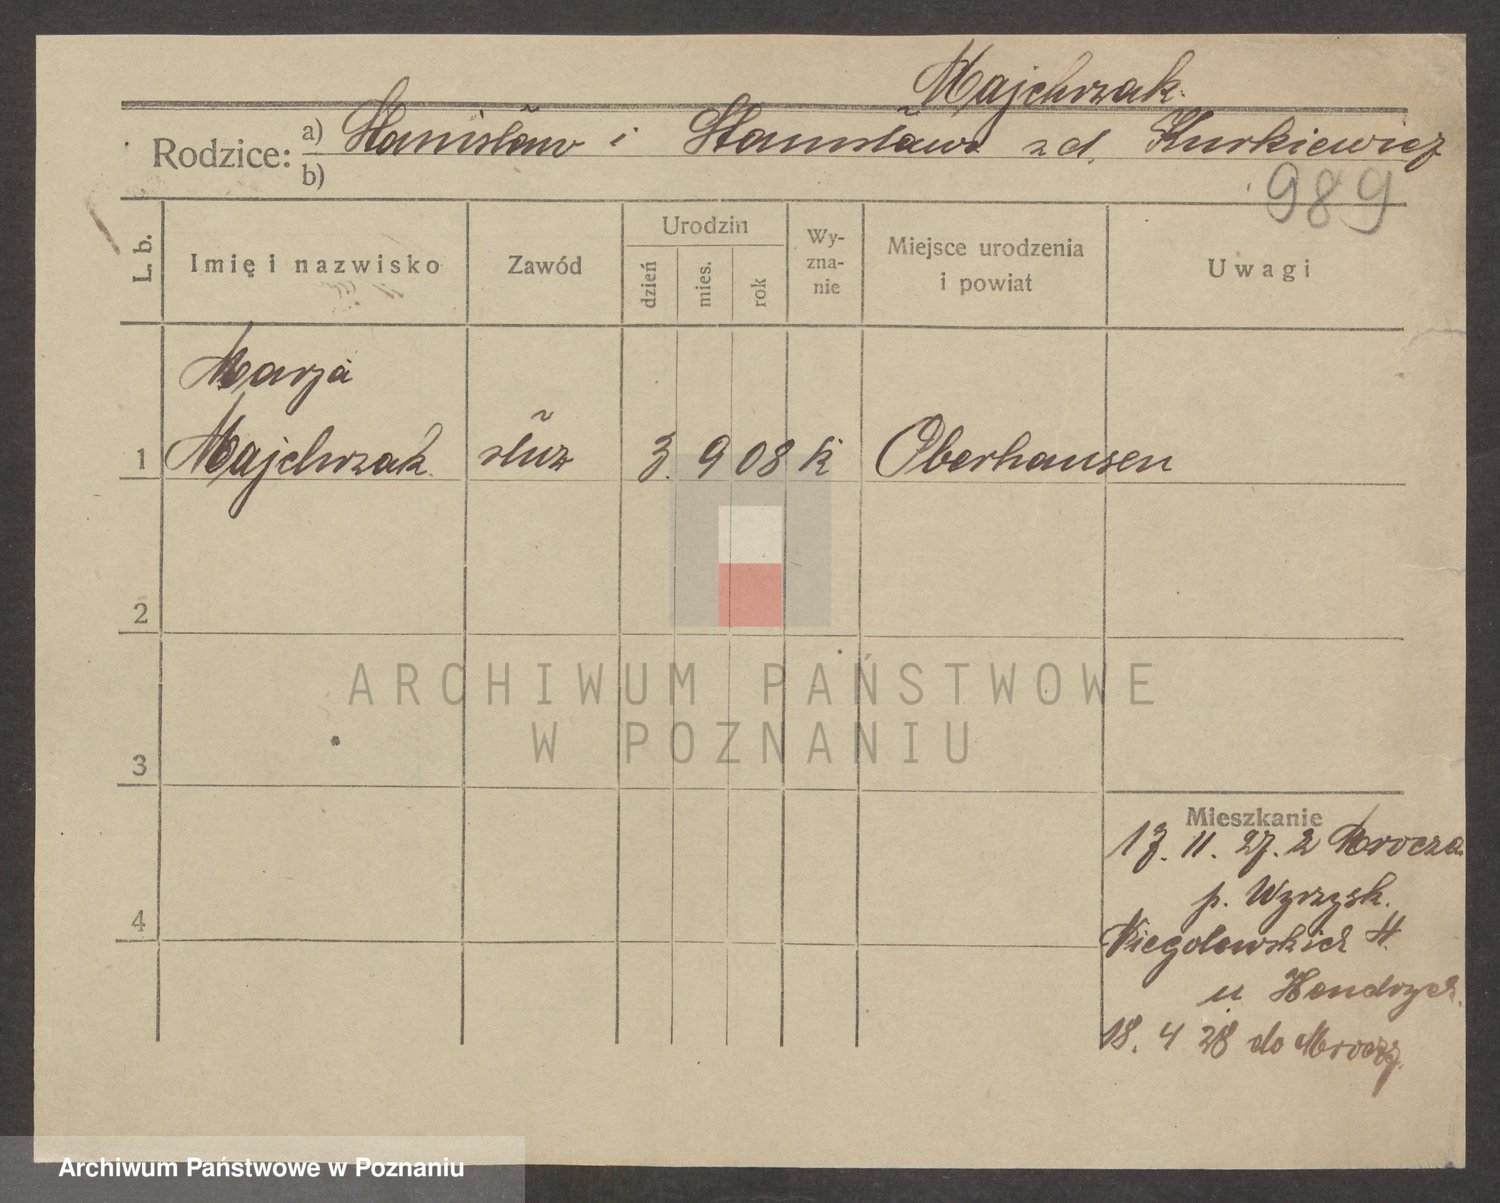 Majchrzak.
Rodzice: a) Stanisław i Stanisława z d. Kurkiewicz
b)
989
L. b. Imię i nazwisko Zawód Urodzin dzień mies. rok Wyzna-nie Miejsce urodzenia i powiat Uwagi
Marja
1 Majchrzak służ 3. 9 08 k Oberhausen
2
ARCHIWUM PAŃSTWOWE
W POZNANIU
3
Mieszkanie
17. 11. 27. z Mrocza
p. Wyrzysk.
4
Niegolewskich
u
18. 4 28 do Mroczy.
Archiwum Państwowe w Poznaniu